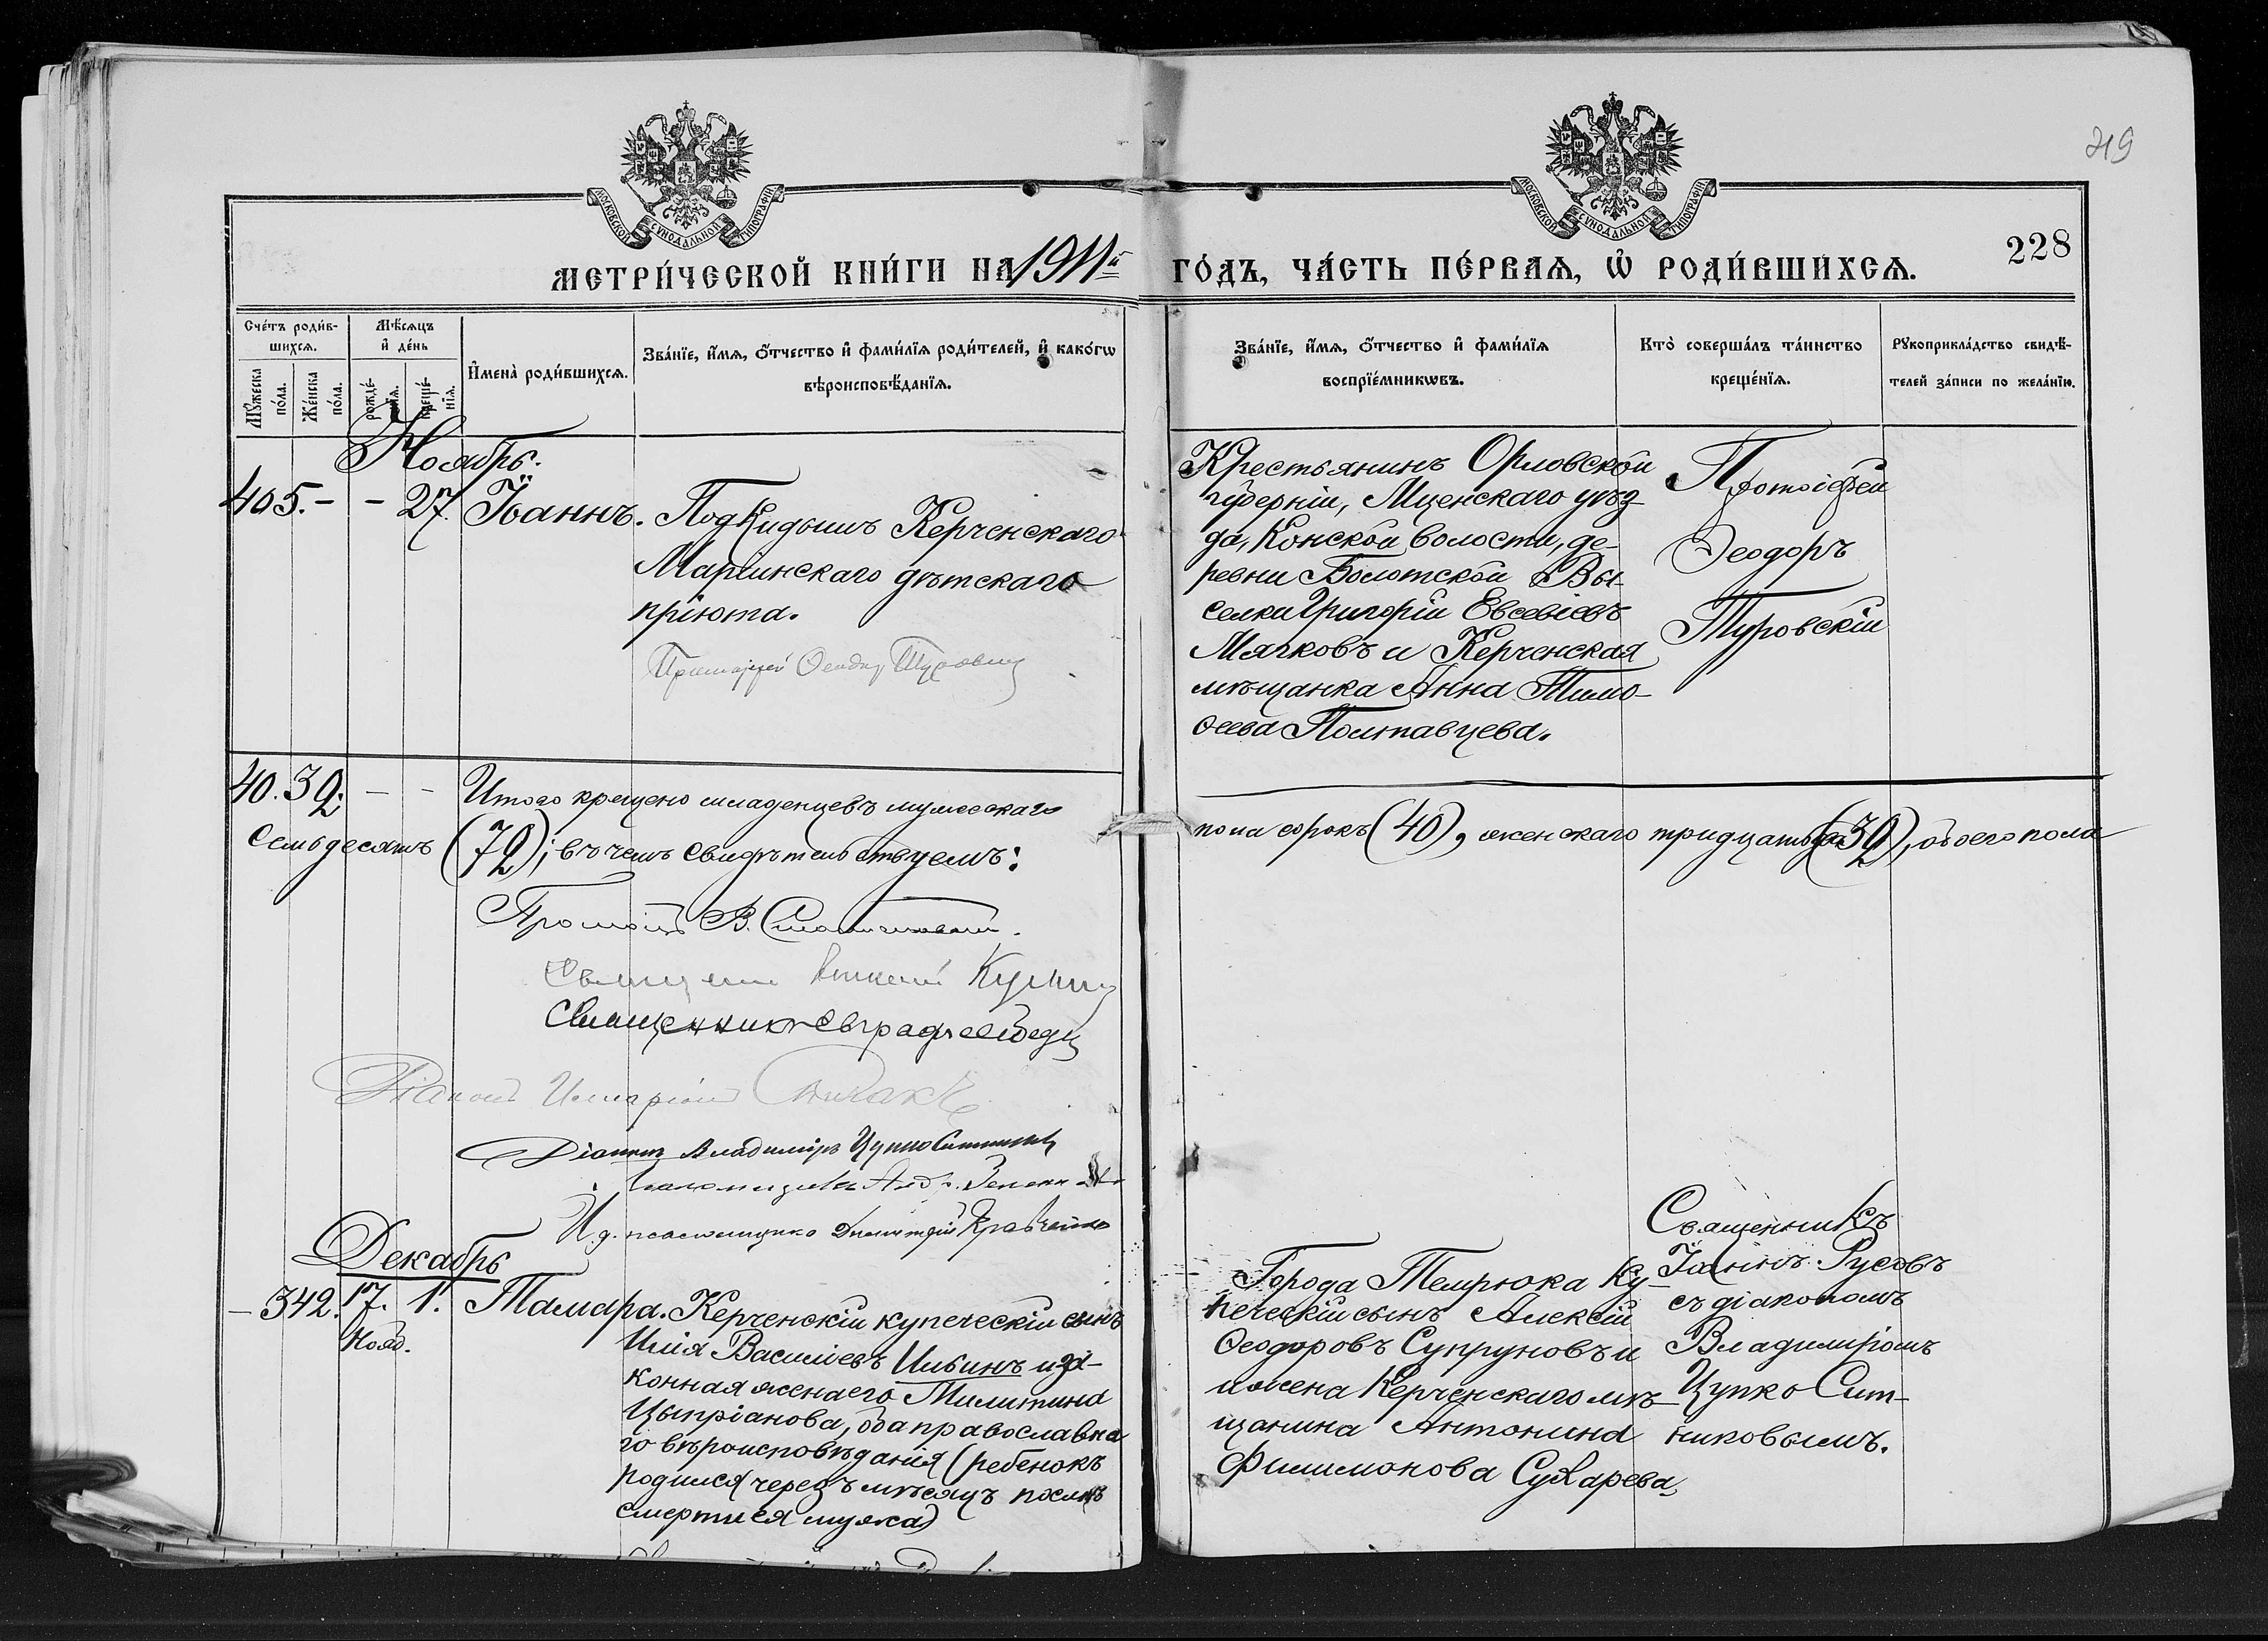 219
МОСКОВСКОЙ СѴНОДАЛЬНОЙ ТИПОГРАФІИ
МОСКОВСКОЙ СѴНОДАЛЬНОЙ ТИПОГРАФІИ
228
МЕТРИ́ЧЕСКОЙ КНИ́ГИ НА 1911й ГО́ДЪ, ЧА́СТЬ ПЕ́РВАѦ, Ѡ҆ РОДИ́ВШИХСѦ.
Сче́тъ роди́в-
шихсѧ.
Мꙋ́жеска по́ла.
Же́нска по́ла.
Мѣ́сѧцъ
и҆ де́нь
рожде́-
нїѧ.
креще́-
нїѧ.
И҆мена̀ роди́вшихсѧ.
Зва́нїе, и҆́мѧ, ѻ҆́тчество и҆ фами́лїѧ роди́телей, и҆ како́гѡ
вѣроисповѣ́данїѧ.
Зва́нїе, и҆́мѧ, ѻ҆́тчество и҆ фами́лїѧ
воспрїе́мникѡвъ.
Кто̀ соверша́лъ та́инство
креще́нїѧ.
Рꙋкоприкла́дство свидѣ́-
телей за́писи по жела́нїю.
Ноябрь.
405. - - 27. Іоаннъ. Подкидышъ Керченскаго
Маріинскаго дѣтскаго
пріюта.
Протоіерей Ѳеодор Туровскій
Крестьянинъ Орловской
губерніи, Мценскаго уѣз
да, Конской волости, де-
ревни Болотской Вы-
селки Григорій Евсевіевъ
Мячковъ и Керченская
мѣщанка Анна Тимо-
ѳеева Полтавцева.
Протоіерей
Ѳеодоръ
Туровскій
40. 32. - - Итого крещено младенцевъ мужескаго
пола сорокъ (40), женскаго тридцать два (32), обоего пола
семьдесятъ (72); въ чемъ свидѣтельствуемъ:
В.
Священникъ
Священникъ
Діаконъ
Діаконъ Владиміръ Цупко Ситниковъ
И. д. псаломщика Димитрій Кравченко
Декабрь
- 342. 17. 1. Тамара. Керченскій купеческій сынъ
Нояб.
Илія Василіевъ Ильинъ и за-
конная жена его Милитина
Цыпріанова, оба православна
го вѣроисповѣданія (ребенокъ
родился черезъ мѣсяцъ послѣ
смерти ея мужа)
Города Темрюка ку-
печескій сынъ Алексій
Ѳеодоровъ Супруновъ и
и жена Керченскаго мѣ-
щанина Антонина
Филимонова Сухарева
Священникъ
Іоаннъ Русовъ
съ діакономъ
Владиміромъ
Цупко Сит-
никовымъ.